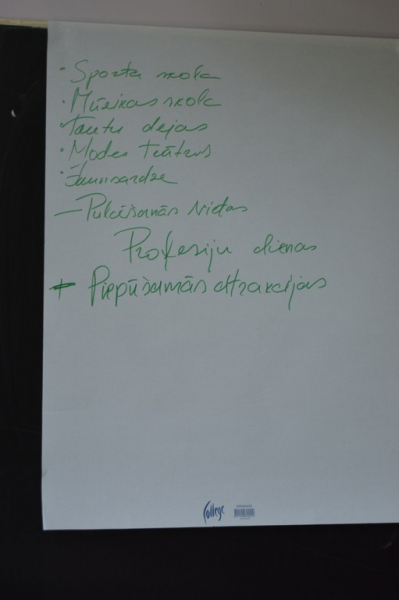 · Sporta skola
· Mūzikas skola
· Tautu dejas
· Modes teātrus
· Jaunsardze
— Pulcēšanās vietas
Profesiju dienas
+ Piepūšamās atrakcijas
College